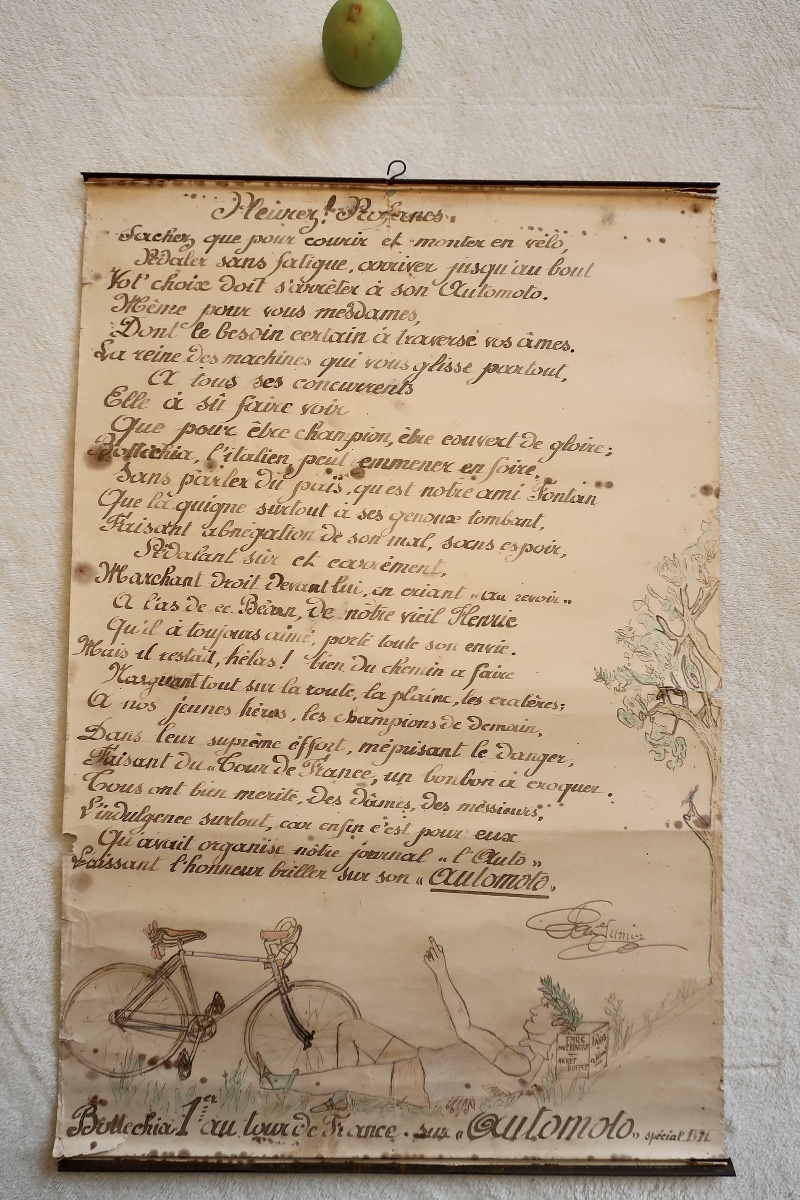 Pleurez! Profanes.
Sachez que pour courir et monter en vélo,
Pédaler sans fatigue, arriver jusqu'au bout
Vot' choix doit s'arrêter à son Automoto.
Même pour vous mesdames,
Dont le besoin certain à traversé vos âmes.
La reine des machines qui vous glisse partout,
A tous ses concurrents
Elle à sû faire voir
Que pour être champion, être couvert de gloire;
Bottechia, l'italien, peut emmener en foire,
Sans parler du païs, qu'est notre ami Fontan
Que la guigne surtout à ses genoux tombant,
Faisant abnégation de son mal, sans espoir,
Pédalant sûr et carrément,
Marchant droit devant lui, en criant "au revoir"
A l'as de ce Béarn, de nôtre vieil Henric
Qu'il à toujours aimé, porté toute son envie.
Mais il restait, hélas! bien du chemin a faire
Narguant tout sur la route, la plaine, les cratères;
A nos jeunes héros, les champions de demain,
Dans leur suprême éffort, méprisant le danger,
Faisant du "Tour de France, un bonbon à croquer.
Tous ont bien merité, des dâmes, des messieurs,
L'indulgence surtout, car enfin c'est pour eux
Qu'avait organisé nôtre journal "l'Auto"
Laissant l'honneur briller sur son "Automoto"
Junior
PARIS
ARRET
BUFFET
Bottechia 1er au tour de France. sur "Automoto" spécial.